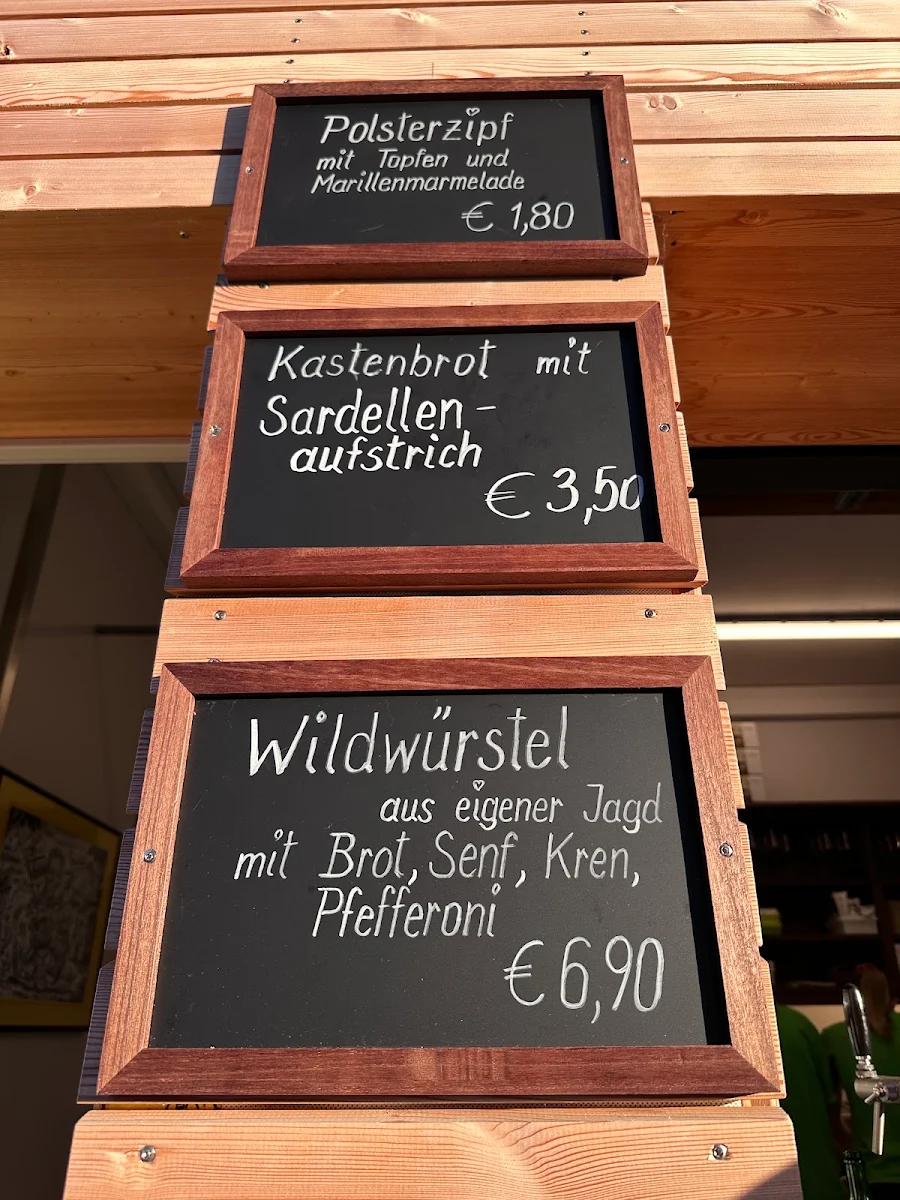 Polsterzipf
mit Topfen und
Marillenmarmelade
€ 1,80
Kastenbrot mit
Sardellen-
aufstrich
€ 3,50
Wildwürstel
aus eigener Jagd
mit Brot, Senf, Kren,
Pfefferoni
€ 6,90